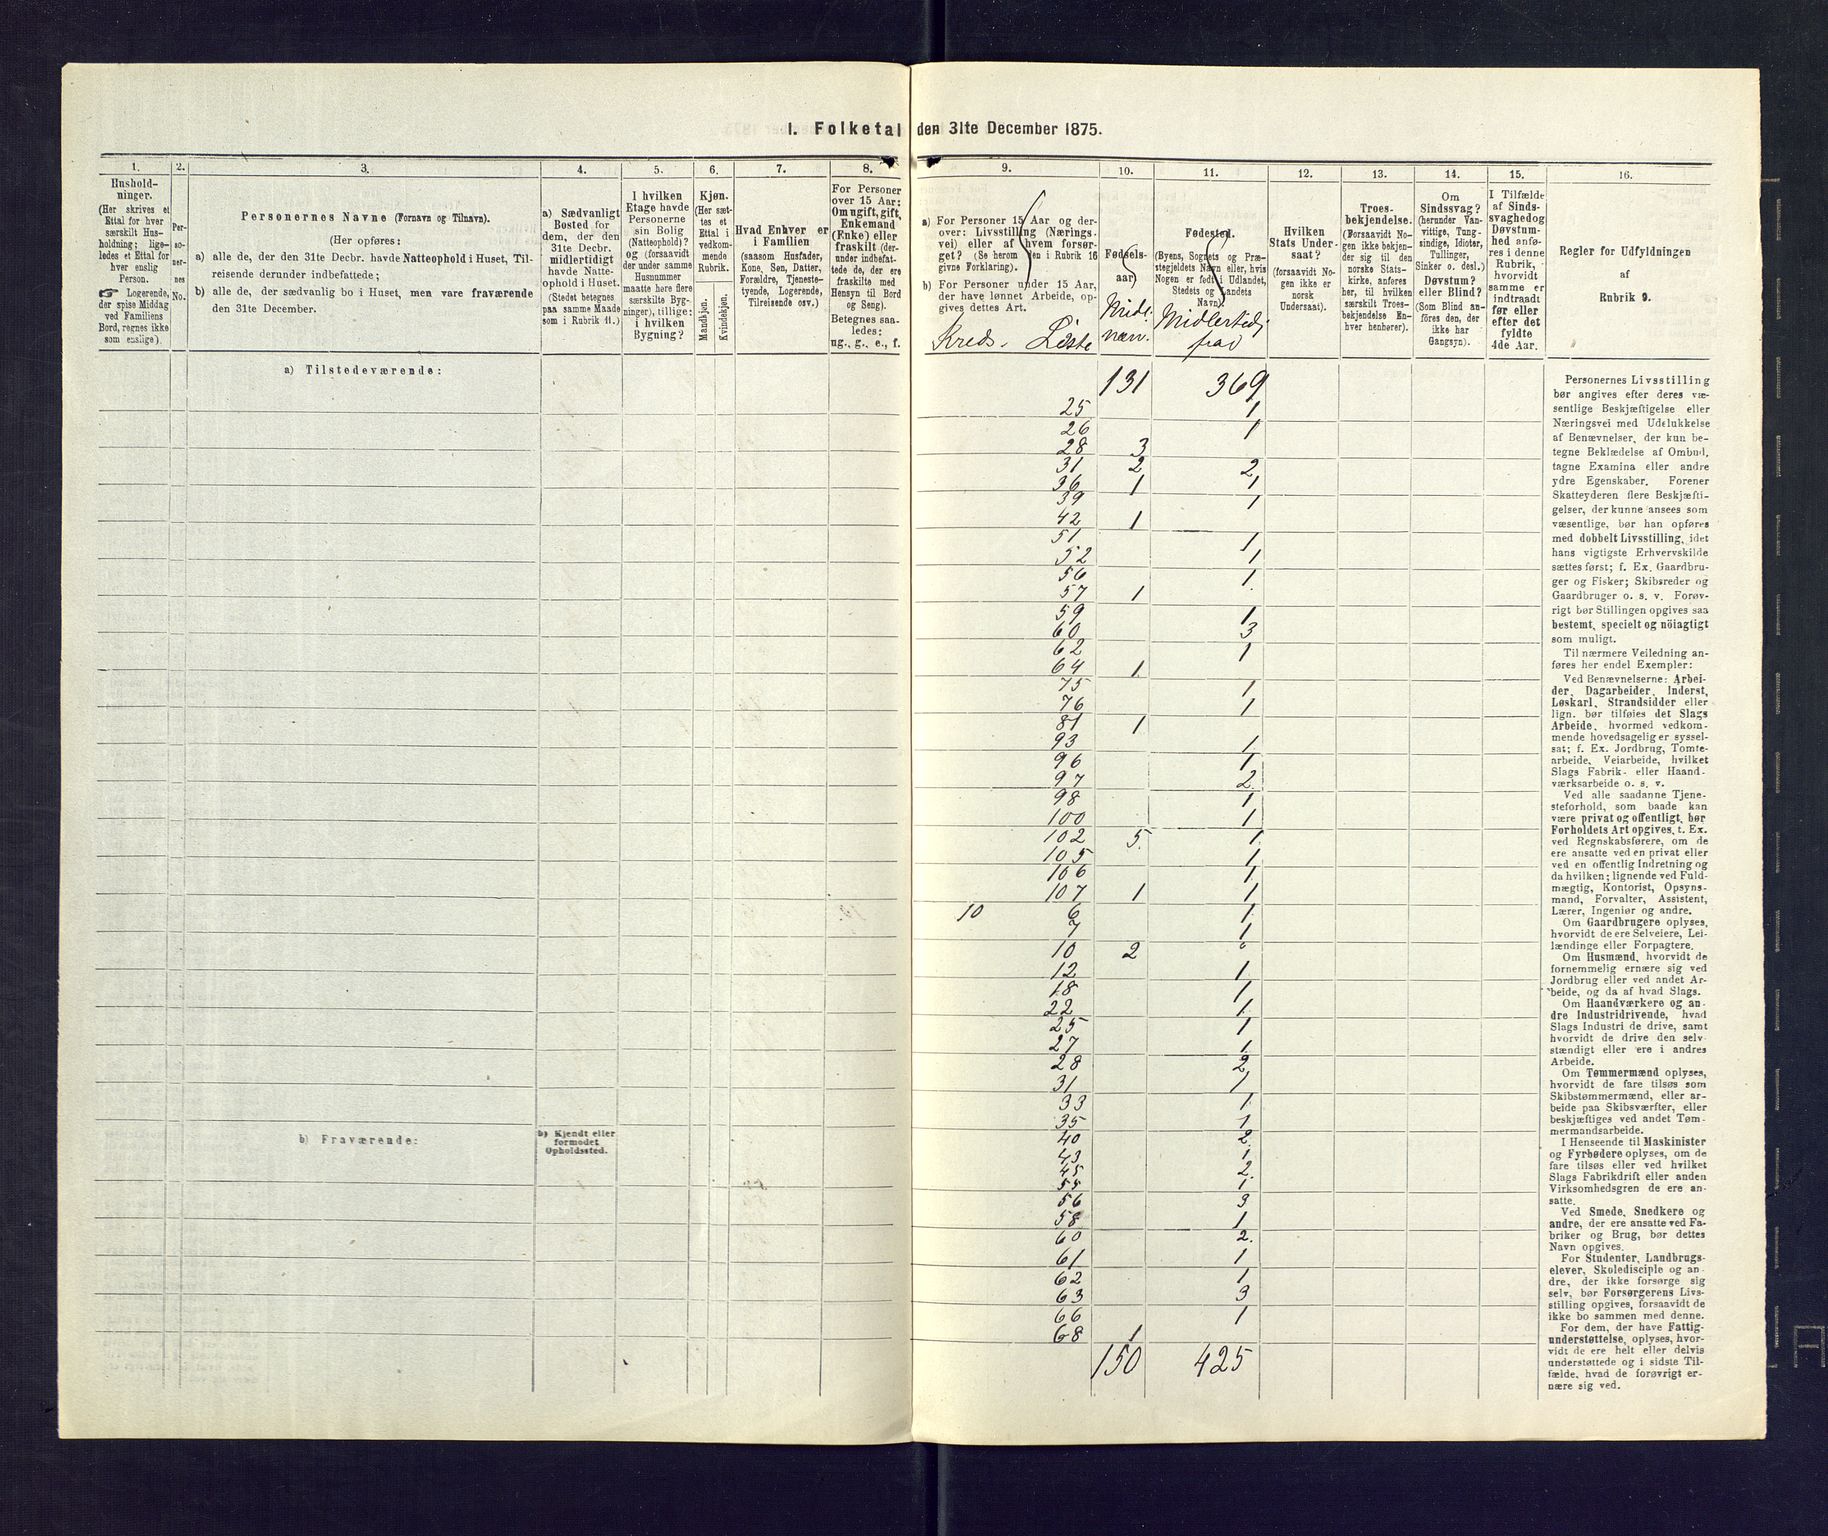 1. Folketal den 31te December 1875.
1.
Hushold-
ninger.
(Her skrives et
Ettal for hver
særskilt Hus-
holdning; lige-
ledes et Ettal for
hver enslig
Person.
☞ Logerende,
der spise Middag
ved Familiens
Bord, regnes ikke
som enslige).
2.
Per-
so-
ner-
nes
No.
3.
Personernes Navne (Fornavn og Tilnavn).
(Her opføres:
a) alle de, der den 31te Decbr. havde Natteophold i Huset, Til-
reisende derunder indbefattede;
b) alle de, der sædvanlig bo i Huset, men vare fraværende
den 31te December.
4.
a) Sædvanligt
Bosted for
dem, der den
31te Decbr.
midlertidigt
havde Natte-
ophold i Huset.
(Stedet betegnes
paa samme Maade
som i Rubrik 11.)
5.
I hvilken
Etage havde
Personerne
sin Bolig
(Natteophold)?
og (forsaavidt
der under samme
Husnummer
maatte høre flere
særskilte Byg-
ninger), tillige:
i hvilken
Bygning?
6.
Kjøn.
(Her sæt-
tes et
Ettal i
vedkom-
mende
Rubrik.
Mandkjøn.
Kvindekjøn.
7.
Hvad Enhver er
i Familien
(saasom Husfader,
Kone, Søn, Datter,
Forældre, Tjeneste-
tyende, Logerende,
Tilreisende osv.)
8.
For Personer
over 15 Aar:
Om ugift, gift,
Enkemand
(Enke) eller
fraskilt (der-
under indbefat-
tede de, der ere
fraskilte med
Hensyn til Bord
og Seng).
Betegnes saa-
ledes:
ug., g., e., f.
9.
a) For Personer 15 Aar og der-
over: Livsstilling (Nærings-
vei) eller af hvem forsør-
get? (Se herom den i Rubrik 16
givne Forklaring).
b) For Personer under 15 Aar,
der have lønnet Arbeide, op-
gives dettes Art.
Kreds. Liste
10.
Fødsels-
aar)
Kvide-
næn.
11.
Fødested.
(Byens, Sognets og Præ-
stegjeldets Navn eller, hvis
Nogen er født i Udlandet,
Stedets og Landets
Navn).
Midlertid.
frav
12.
Hvilken
Stats Under-
saat?
(forsaavidt No-
gen ikke er
norsk
Undersaat).
13.
Troes-
bekjendelse.
(Forsaavidt No-
gen ikke bekjen-
der sig til den
norske Stats-
kirke, anføres
her, til hvilken
særskilt Troes-
bekjendelse En-
hver henhører).
14.
Om
Sindssvag?
(herunder Van-
vittige, Tung-
sindige, Idioter,
Tullinger,
Sinker o. desl.)
Døvstum?
eller Blind?
(Som Blind an-
føres den, der
ikke har
Gangsyn).
15.
I Tilfælde
af Sinds-
svaghed og
Døvstum-
hed anfø-
res i denne
Rubrik,
hvorvidt
samme er
indtraadt
før eller
efter det
fyldte
4de Aar.
16.
Regler for Udfyldningen
af
Rubrik 9.
a) Tilstedeværende:
131 369
25 1
26 1
28 3
31 2 2
36 1 1
39 1
42 1
51 1
52 1
56 1
57 1
59 1
60 3
62 1
64 1
75 1
76 1
81 1
93 1
96 1
97 2
98 1
100 1
102 5 1
105 1
106 1
107 1 1
10 6 1
7 1
10 2
12 1
18 1
22 1
25 1
27 1
28 2
31 1
33 1
35 1
40 2
43 1
45 2
55 1
56 3
58 1
60 2
61 1
62 1
63 3
66 1
68 1
150 425
b) Fraværende:
b) Kjendt eller
formodet
Opholdssted.
Personernes Livsstilling
bør angives efter deres væ-
sentlige Beskjæftigelse eller
Næringsvei med Udelukkelse
af Benævnelser, der kun be-
tegne Beklædelse af Ombud,
tagne Examina eller andre
ydre Egenskaber. Forener
Skatteyderen flere Beskjæfti-
gelser, der kunne ansees som
væsentlige, bør han opføres
med dobbelt Livsstilling, idet
hans vigtigste Erhvervskilde
sættes først; f. Ex. Gaardbru-
ger og Fisker; Skibsreder og
Gaardbruger o. s. v. Forøv-
rigt bør Stillingen opgives saa
bestemt, specielt og nöiagtigt
som muligt.
Til nærmere Veiledning an-
føres her endel Exempler:
Ved Benævnelserne: Arbei-
der, Dagarbeider, Inderst,
Løskarl, Strandsidder eller
lign. bør tilføies det Slags
Arbeide, hvormed vedkom-
mende hovedsagelig er syssel-
sat; f. Ex. Jordbrug, Tomte-
arbeide, Veiarbeide, hvilket
Slags Fabrik- eller Haand-
værksarbeide o. s. v.
Ved alle saadanne Tjene-
steforhold, som baade kan
være privat og offentligt, bør
Forholdets Art opgives, t. Ex.
ved Regnskabsførere, om de
ere ansatte ved en privat eller
ved en offentlig Indretning og
da hvilken; lignende ved Fuld-
mægtig, Kontorist, Opsyns-
mand, Forvalter, Assistent,
Lærer, Ingeniør og andre.
Om Gaardbrugere oplyses,
hvorvidt de ere Selveiere, Lei-
lændinge eller Forpagtere.
Om Husmænd, hvorvidt de
fornemmelig ernære sig ved
Jordbrug eller ved andet Ar-
beide, og da af hvad Slags.
Om Haandværkere og an-
dre Industridrivende, hvad
Slags Industri de drive, samt
hvorvidt de drive den selv-
stændigt eller ere i andres
Arbeide.
Om Tømmermænd oplyses,
hvorvidt de fare tilsøs som
Skibstømmermænd, eller ar-
beide paa Skibsværfter, eller
beskjæftiges ved andet Tøm-
mermandsarbeide.
I Henseende til Maskinister
og Fyrbødere oplyses, om de
fare tilsøs eller ved hvilket
Slags Fabrikdrift eller anden
Virksomhedsgren de ere an-
satte.
Ved Smede, Snedkere og
andre, der ere ansatte ved Fa-
briker og Brug, bør dettes
Navn opgives.
For Studenter, Landbrugs-
elever, Skoledisciple og an-
dre, der ikke forsørge sig
selv, bør Forsørgerens Livs-
stilling opgives, forsaavidt de
ikke bo sammen med denne.
For dem, der have Fattig-
understøttelse, oplyses, hvor-
vidt de ere helt eller delvis
understøttede og i sidste Til-
fælde, hvad de forøvrigt er-
nære sig ved.